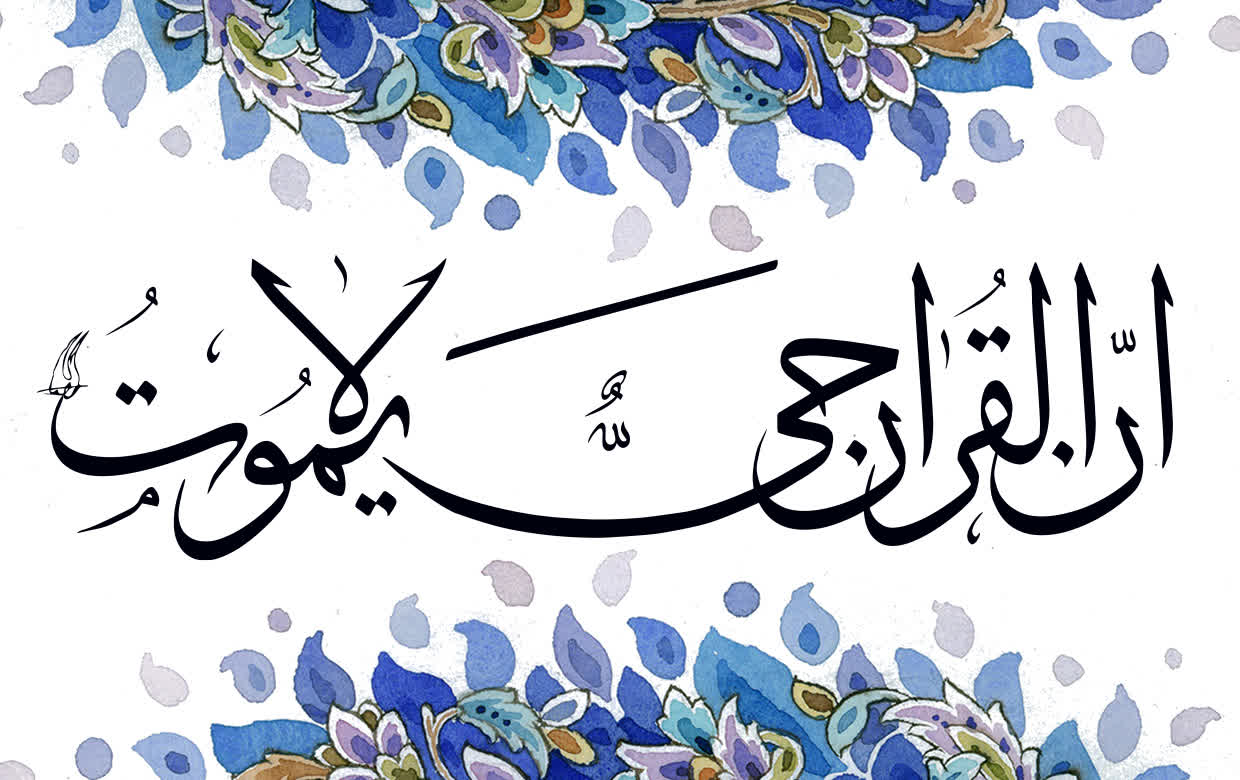 اِنَّ القُراٰن حیٌّ لایَمُوتُ